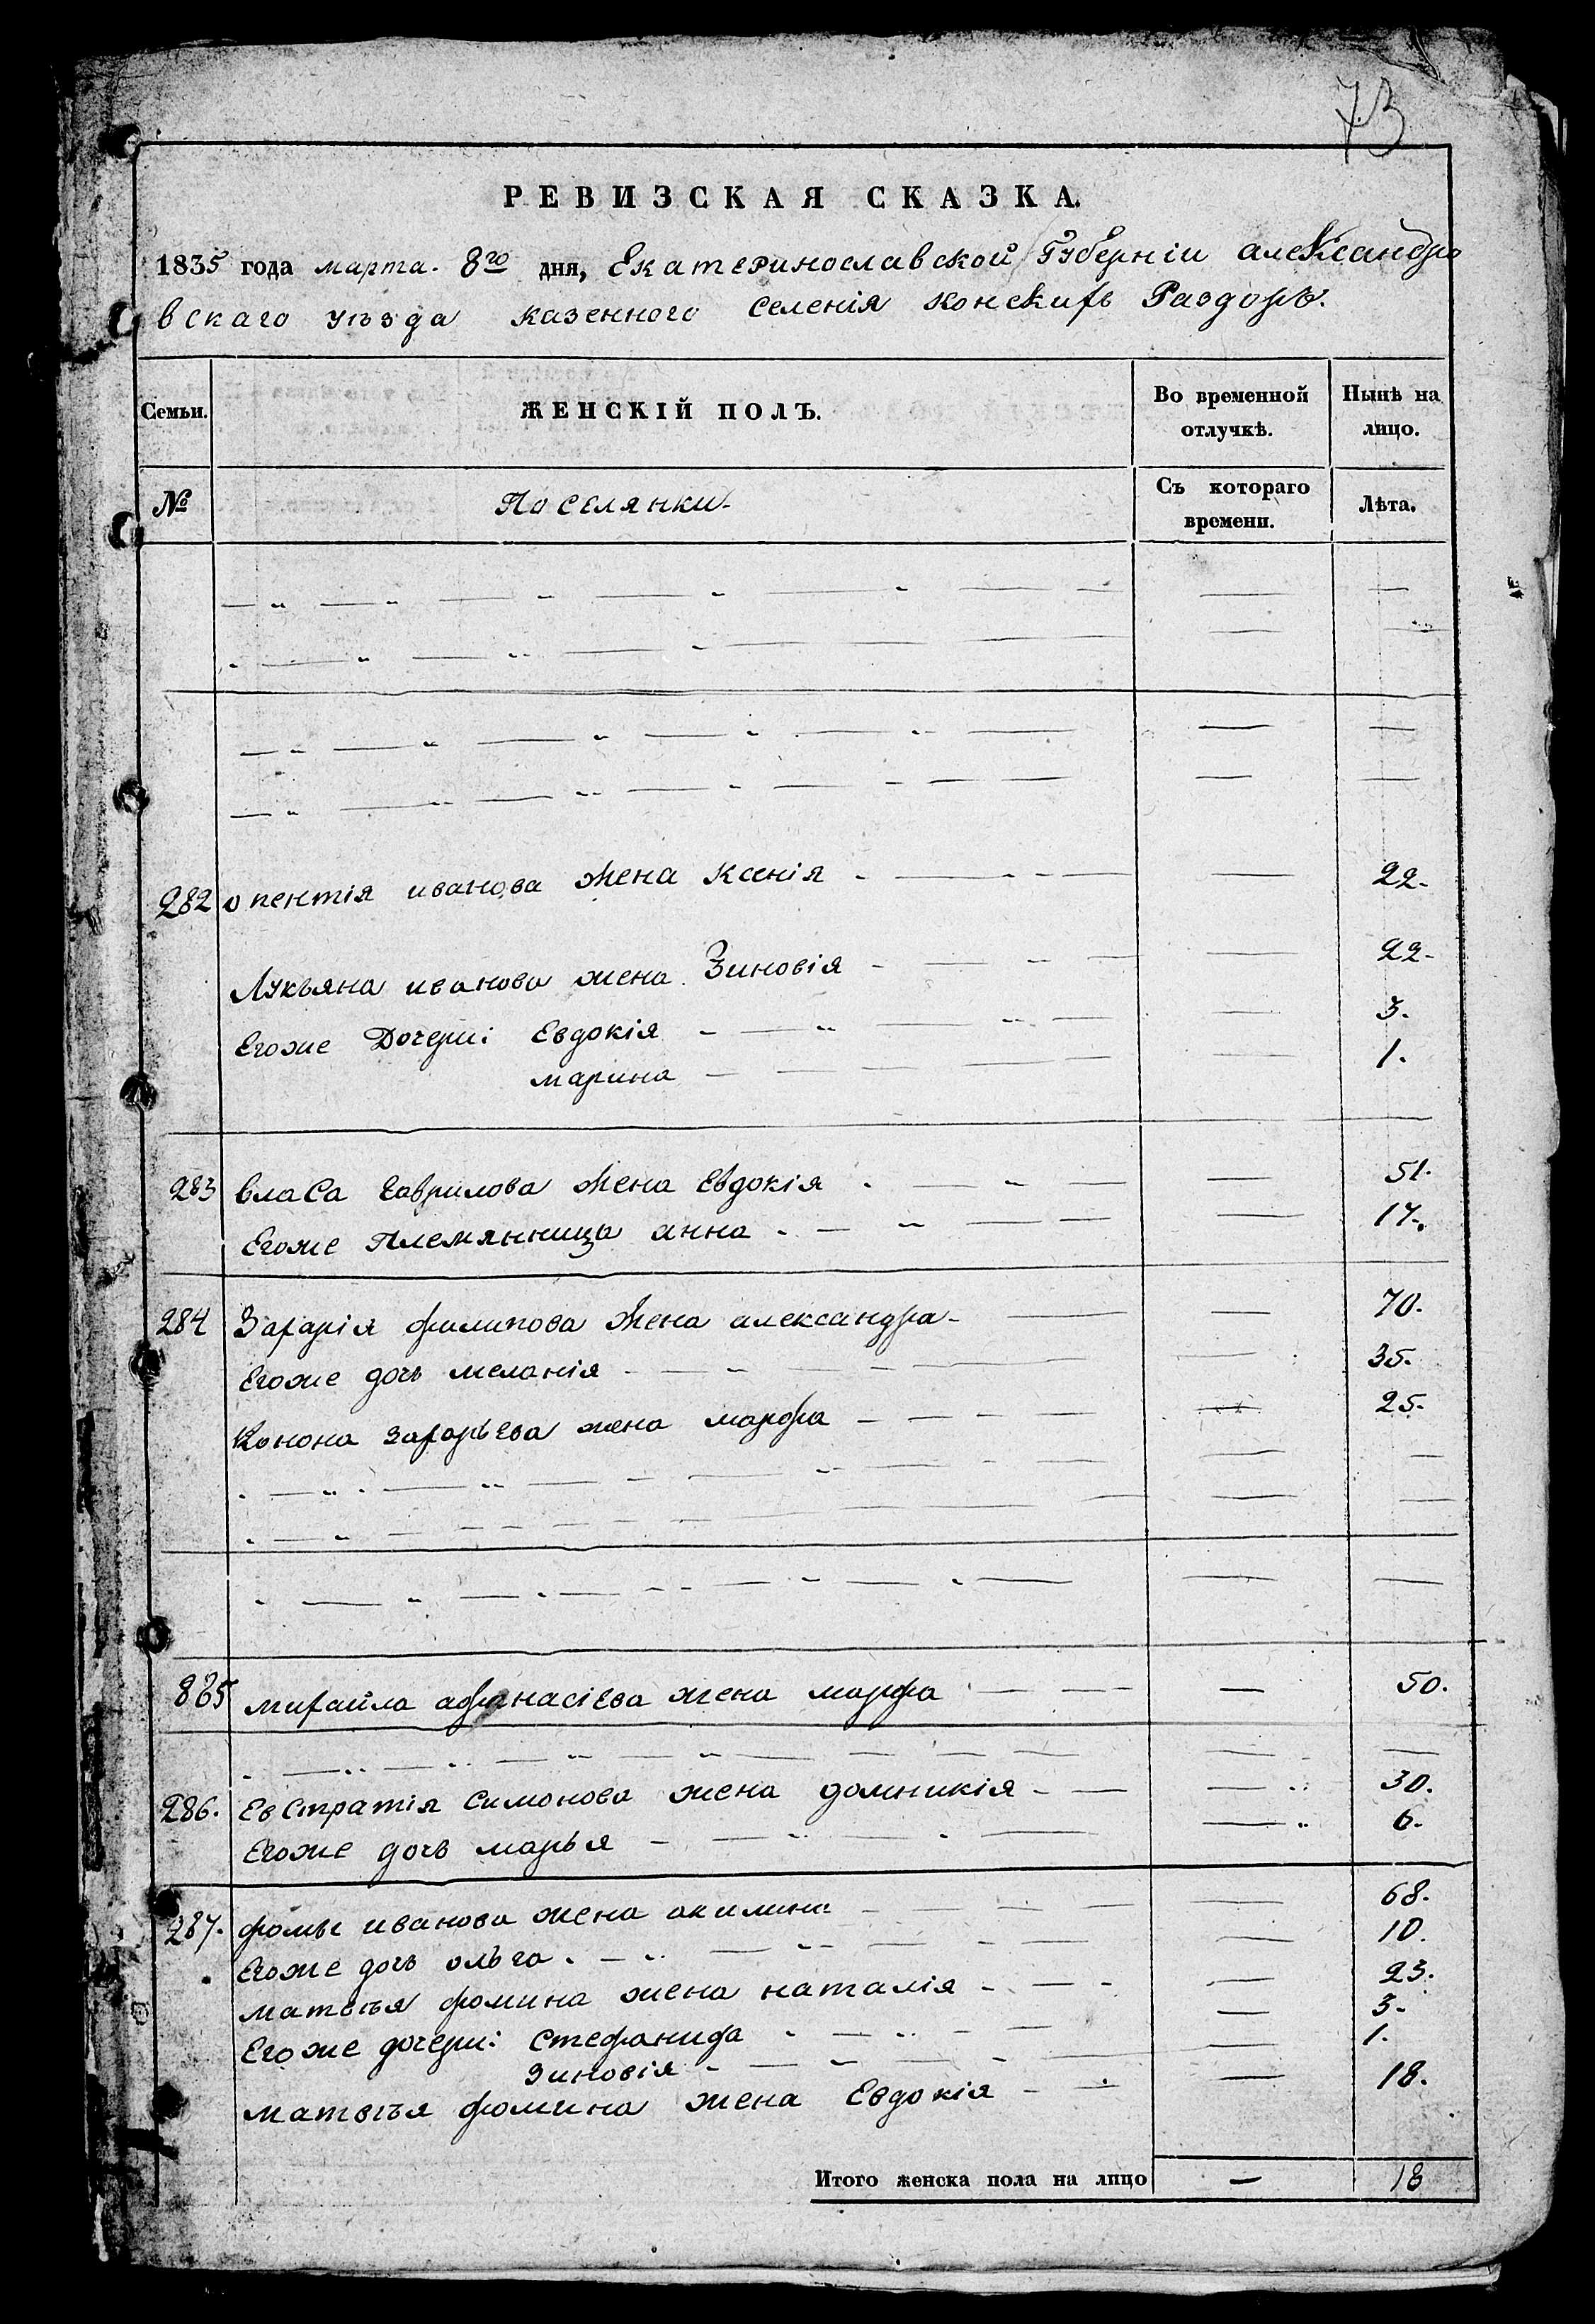 73
РЕВИЗСКАЯ СКАЗКА.
1835 года марта. 8го дня, Екатеринославской Губерніи алеКсандро
вскаго уѣзда казенного селенія конскихъ Раздоръ.
Семьи. ЖЕНСКІЙ ПОЛЪ. Во временной отлучкѣ. Нынѣ на лицо.
№ Поселянки. Съ котораго времени. Лѣта.
282 опентія иванова жена Ксенія 22.
Лукъяна иванова жена Зиновія 22.
Егоже Дочери: Евдокія 3.
марина 1.
283 власа гаврилова жена Евдокія 51.
Егоже племянница анна 17.
284 Захарія филипова жена александра 70.
Егоже дочь меланія 35.
Конона захарьева жена марфа 25.
285 михайла афанасіева жена марфа 50.
286. Евстратія симонова жена домникія 30.
Егоже дочь марья 6.
287. фомы иванова жена акилина 68.
Егоже дочь ольга 10.
матвѣя фомина жена наталія 23.
Егоже дочери: Стефанида 3.
зиновія 1.
матвѣя фомина жена Евдокія 18.
Итого женска пола на лицо — 18